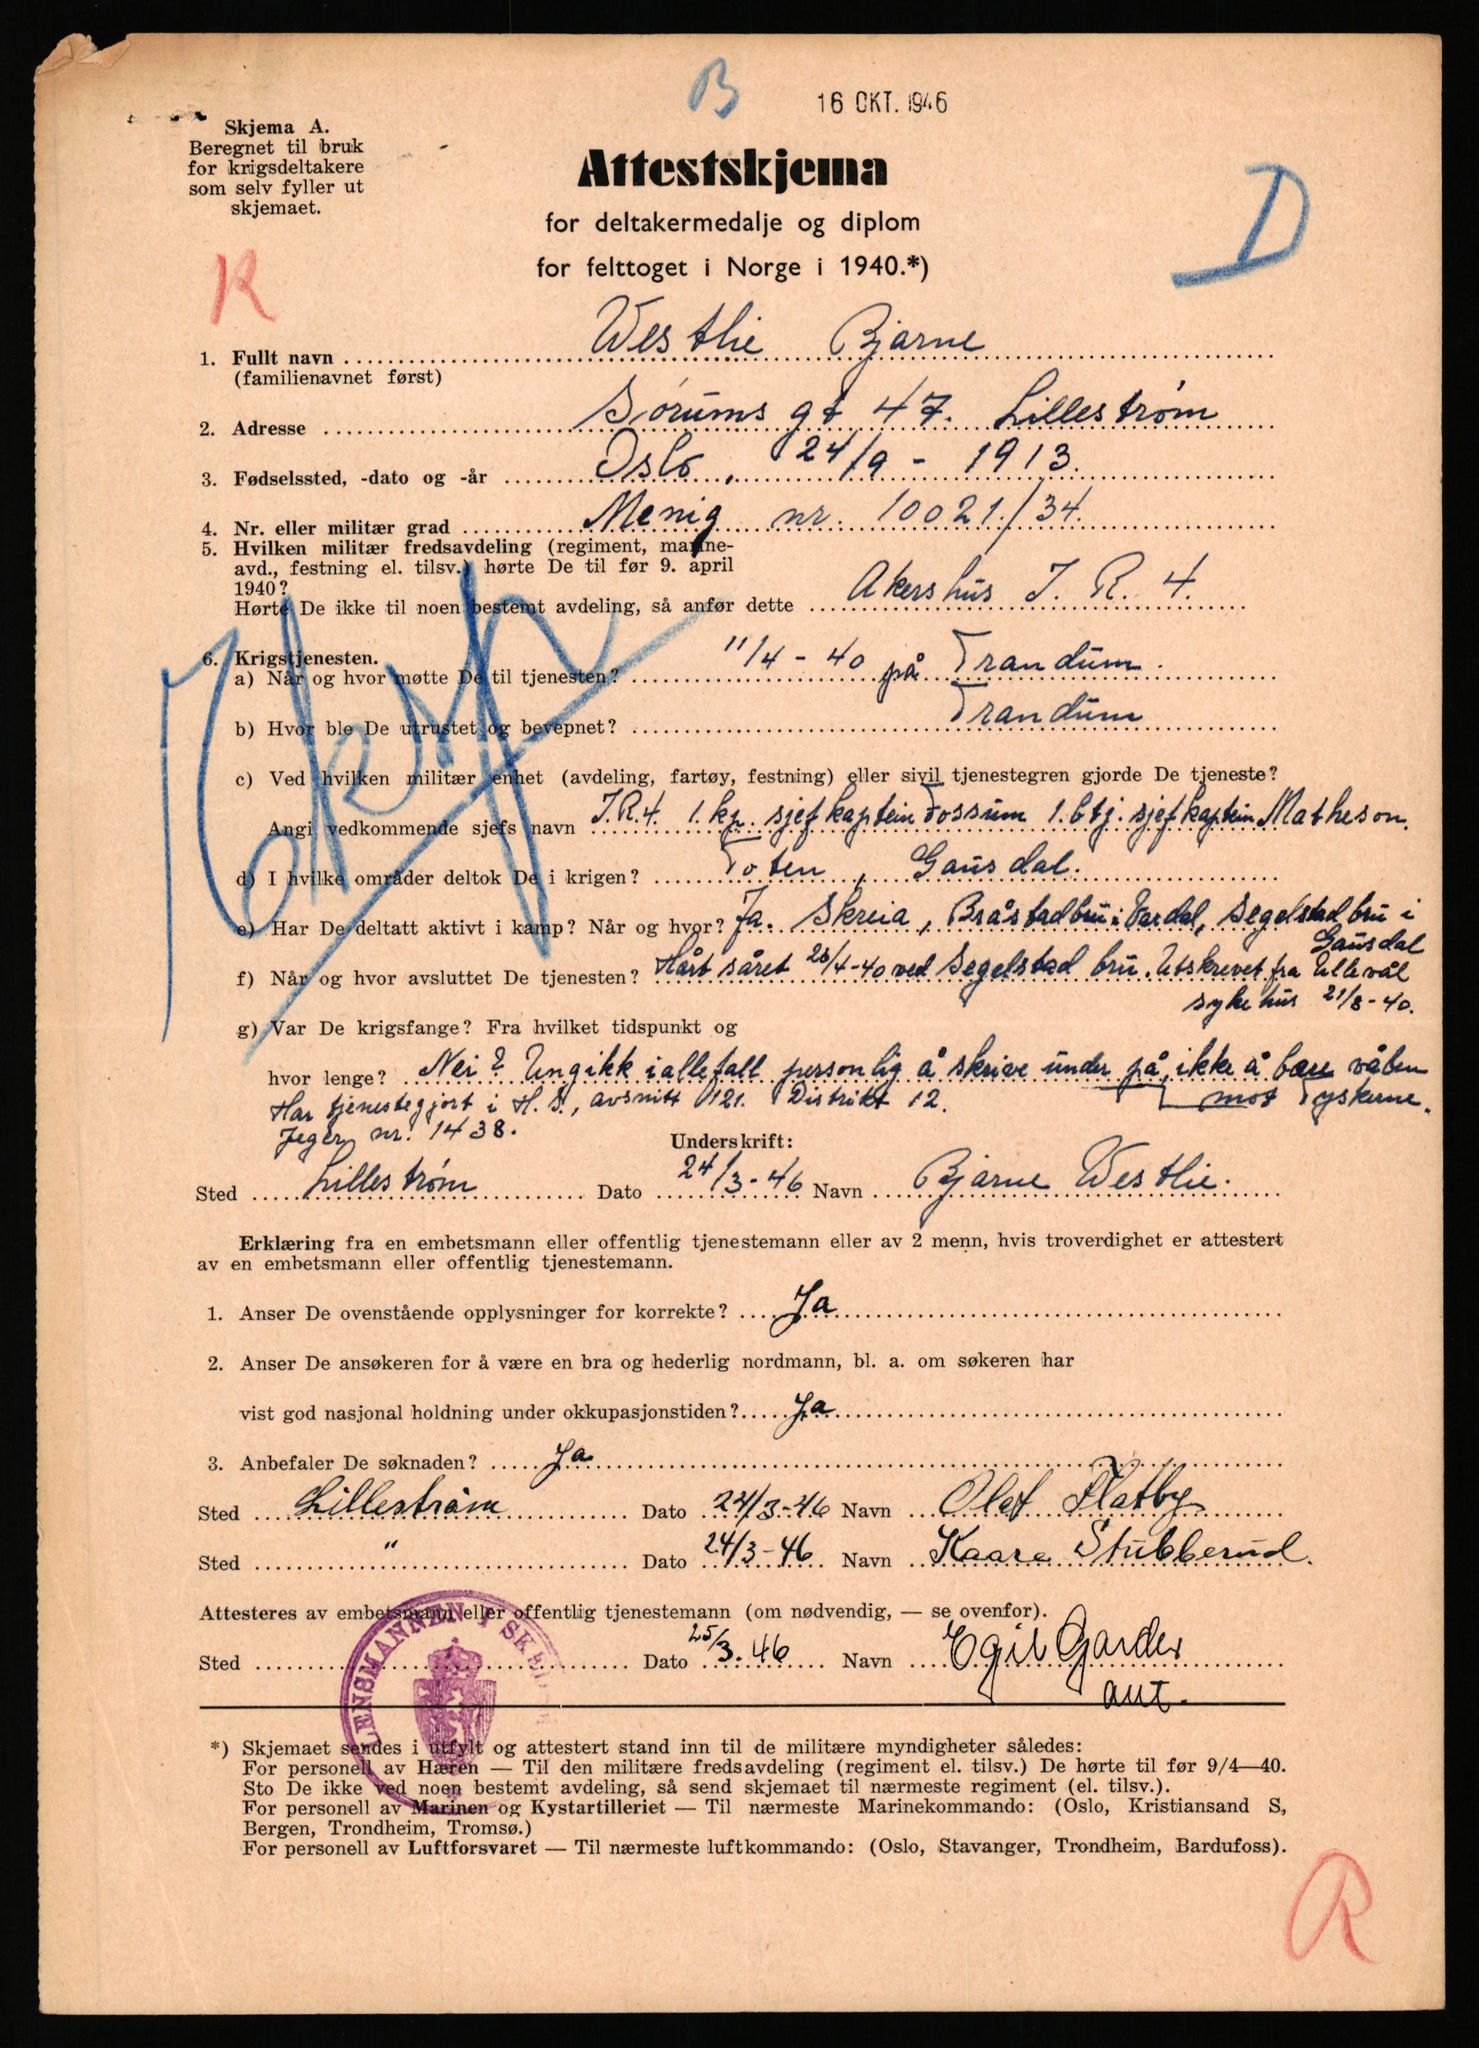 B
16 OKT. 1946
Skjema A.
Beregnet til bruk
for krigsdeltakere
som selv fyller ut
skjemaet.
Attestskjema
for deltakermedalje og diplom
for felttoget i Norge i 1940.*)
D
K
1. Fullt navn Westlie Bjarne
(familienavnet først)
2. Adresse Sørums gt 47. Lillestrøm
3. Fødselssted, -dato og -år Oslo, 24/9 - 1913.
4. Nr. eller militær grad Menig nr. 10021/34.
5. Hvilken militær fredsavdeling (regiment, marine-
avd., festning el. tilsv.) hørte De til før 9. april
1940?
Hørte De ikke til noen bestemt avdeling, så anfør dette Akershus I. R. 4.
6. Krigstjenesten.
a) Når og hvor møtte De til tjenesten? 11/4 - 40 på Trandum.
b) Hvor ble De utrustet og bevepnet? Trandum
c) Ved hvilken militær enhet (avdeling, fartøy, festning) eller sivil tjenestegren gjorde De tjeneste?
Angi vedkommende sjefs navn I.R.4. 1. kp. sjef kaptein Fossum 1. btj. sjef kaptein Matheson.
d) I hvilke områder deltok De i krigen? Toten, Gausdal.
e) Har De deltatt aktivt i kamp? Når og hvor? Ja. Skreia, Bråstadbru i Vardal, Segelstad bru i
Gausdal
f) Når og hvor avsluttet De tjenesten? Hårt såret 28/4-40 ved Segelstad bru. Utskrevet fra Ullevål
sykehus 21/8-40.
g) Var De krigsfange? Fra hvilket tidspunkt og
hvor lenge? Nei? Ungikk iallefall personlig å skrive under på, ikke å bære våben
mot Tyskerne.
Har tjenestegjort i H. S., avsnitt 121. Distrikt 12.
Jeger nr. 1438.
Underskrift:
Sted Lillestrøm Dato 24/3-46 Navn Bjarne Westlie.
Erklæring fra en embetsmann eller offentlig tjenestemann eller av 2 menn, hvis troverdighet er attestert
av en embetsmann eller offentlig tjenestemann.
1. Anser De ovenstående opplysninger for korrekte? Ja
2. Anser De ansøkeren for å være en bra og hederlig nordmann, bl. a. om søkeren har
vist god nasjonal holdning under okkupasjonstiden? Ja
3. Anbefaler De søknaden? Ja
Sted Lillestrøm Dato 24/3-46 Navn Olaf Flatby
Sted " Dato 24/3-46 Navn Kaare Stubberud.
Attesteres av embetsmann eller offentlig tjenestemann (om nødvendig, — se ovenfor).
Sted Dato 25/3. 46 Navn Egil Garder
aut.
LENSMANNEN I SKE
*) Skjemaet sendes i utfylt og attestert stand inn til de militære myndigheter således:
For personell av Hæren — Til den militære fredsavdeling (regiment el. tilsv.) De hørte til før 9/4—40.
Sto De ikke ved noen bestemt avdeling, så send skjemaet til nærmeste regiment (el. tilsv.).
For personell av Marinen og Kystartilleriet — Til nærmeste Marinekommando: (Oslo, Kristiansand S,
Bergen, Trondheim, Tromsø.)
For personell av Luftforsvaret — Til nærmeste luftkommando: (Oslo, Stavanger, Trondheim, Bardufoss).
R